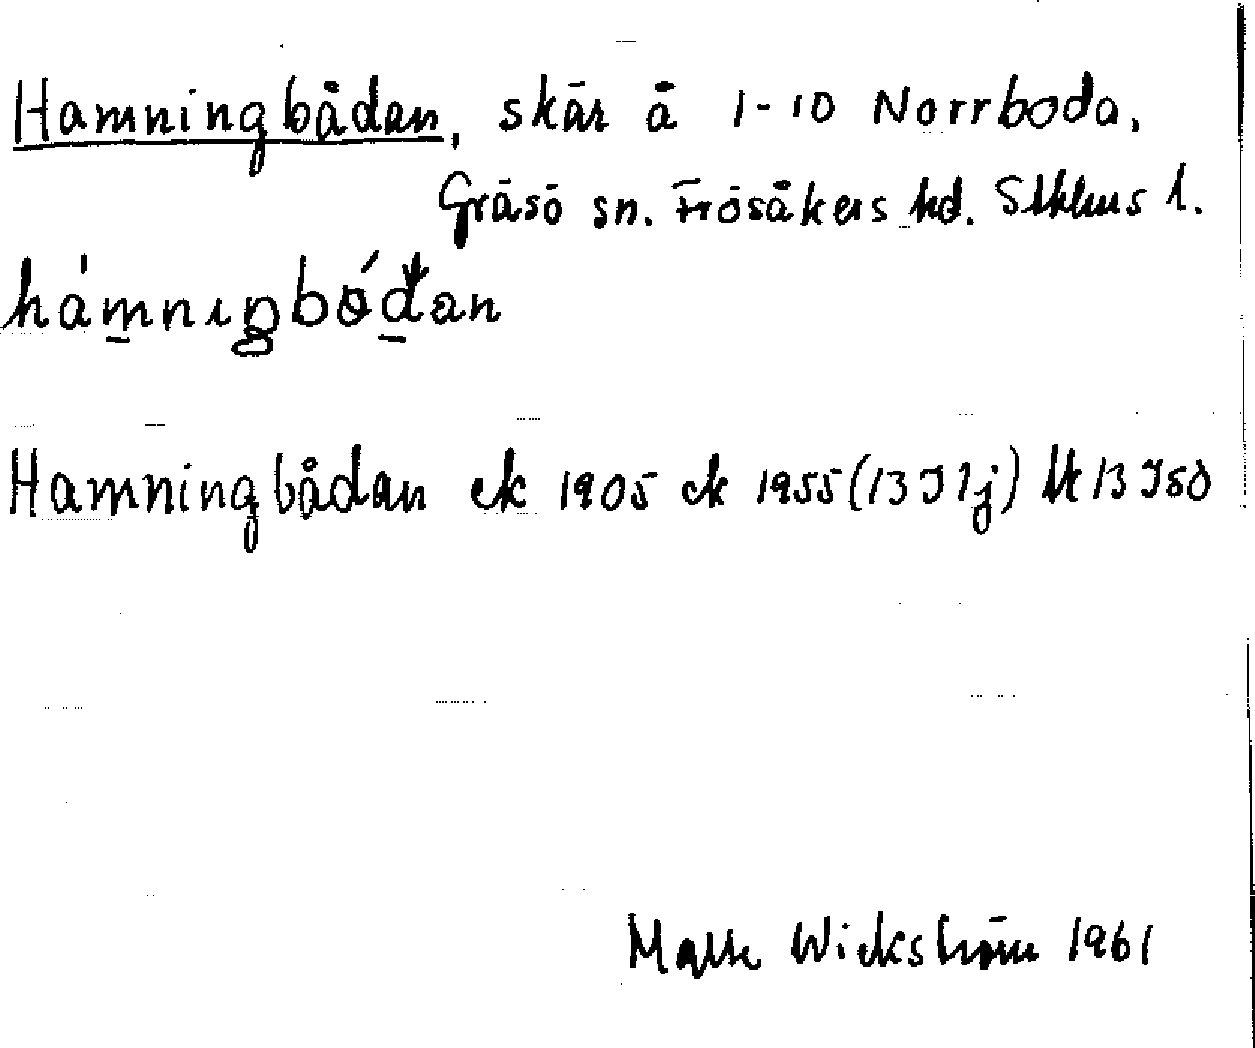 Hamningbådan, skär å 1-10 Norrboda,
Gräsö sn. Frösåkers hd. Sthlms l.
hámnıŋbódan
Hamningbådan ek 1905 ek 1955 (13 I 7j) lt 13 I SO
Malte Wickström 1961